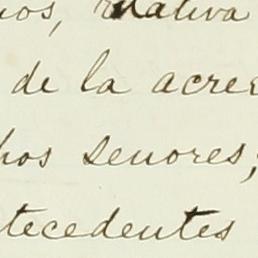 ios, relativa
de la acree
hos senores;
tecedentes